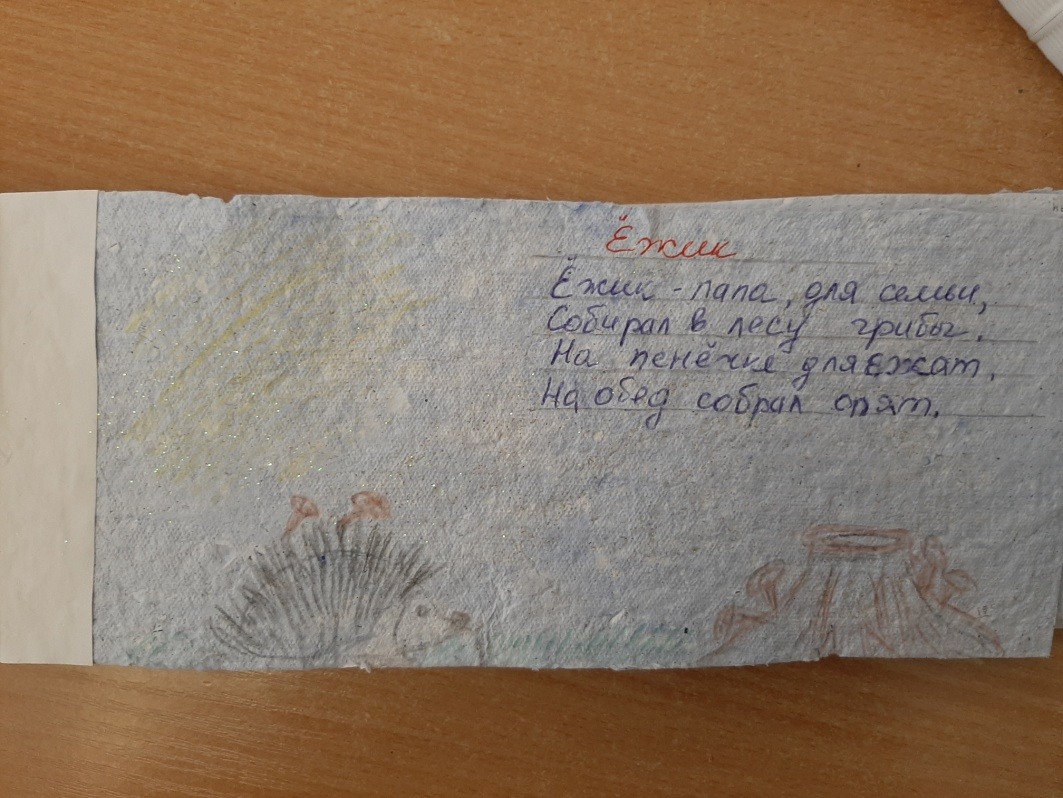 Ёжик
Ёжик - папа, для семьи,
Собирал в лесу грибы.
На пенёчке для ежат,
На обед собрал опят.